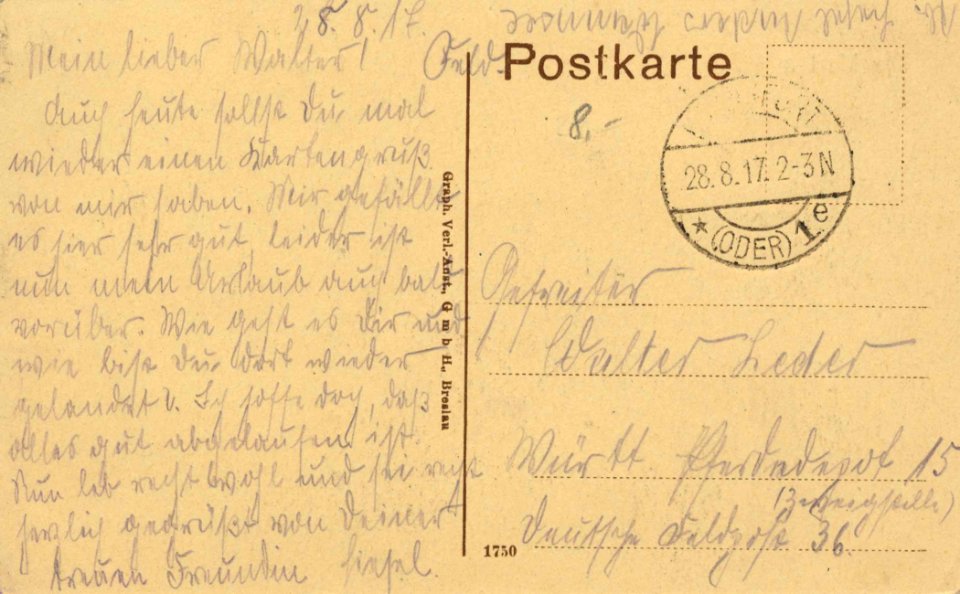 28.8.17.
Mein lieber Walter!
Auch heute sollst Du mal
wieder einen Kartengruß
von mir haben. Mir gefällt
es hier sehr gut, leider ist
nun mein Urlaub auch bald
vorüber. Wie geht es Dir und
wie bist Du dort wieder
gelandet? Ich hoffe doch, daß
alles gut abgelaufen ist.
Nun leb recht wohl und sei recht
herzlich gegrüßt von Deiner
treuen Freundin Liesel.
Graph. Verl.-Anst., G m b H., Breslau
1750
Feld-
Postkarte
8.-
28.8.17. 2-3N
* (ODER) 1e
Gefreiter
Walter Leder
Württ. Pferdedepot 15
(Zweigstelle)
Deutsche Feldpost 36